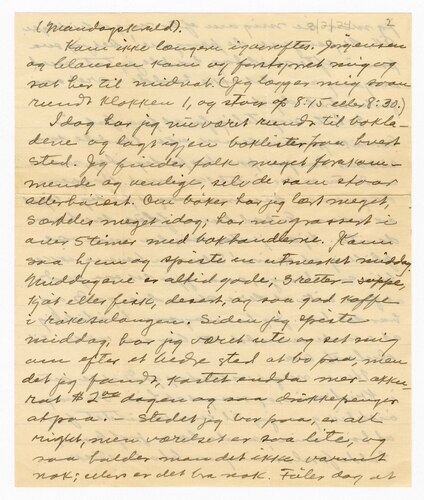 2
(Mandagskveld).
Kom ikke længere igaaraftes. Jørgensen
og Clausen kom og forstyrret mig og
sat her til midnat. (Jeg lægger mig saan
rundt klokken 1, og staar op 8:15 eller 8:30.)
Idag har jeg nu været rundt til bokla-
dene og lagt igjen boklister paa hvert
sted. Jeg finder folk meget forekom-
mende og venlige, selv de som staar
allerhøiest. Om bøker har jeg lært meget,
særdeles meget idag; har nu grassert i
over 5 timer med bokhandlerne. Kom
saa hjem og spiste en utmerket middag.
Middagene er altid gode; 3 retter – suppe,
kjøt eller fisk, desert, og saa god kaffe
i røkesalongen. Siden jeg spiste
middag, har jeg været ute og set mig
om efter et bedre sted at bo paa men
det jeg fandt, kostet endda mer – akku-
rat $2.00 dagen og saa drikkepenger
atpaa. – Stedet jeg bor paa, er alt
right, men værelset er saa lite, og
saa holder man det ikke varmt
nok; ellers er det bra nok. Føler dog at